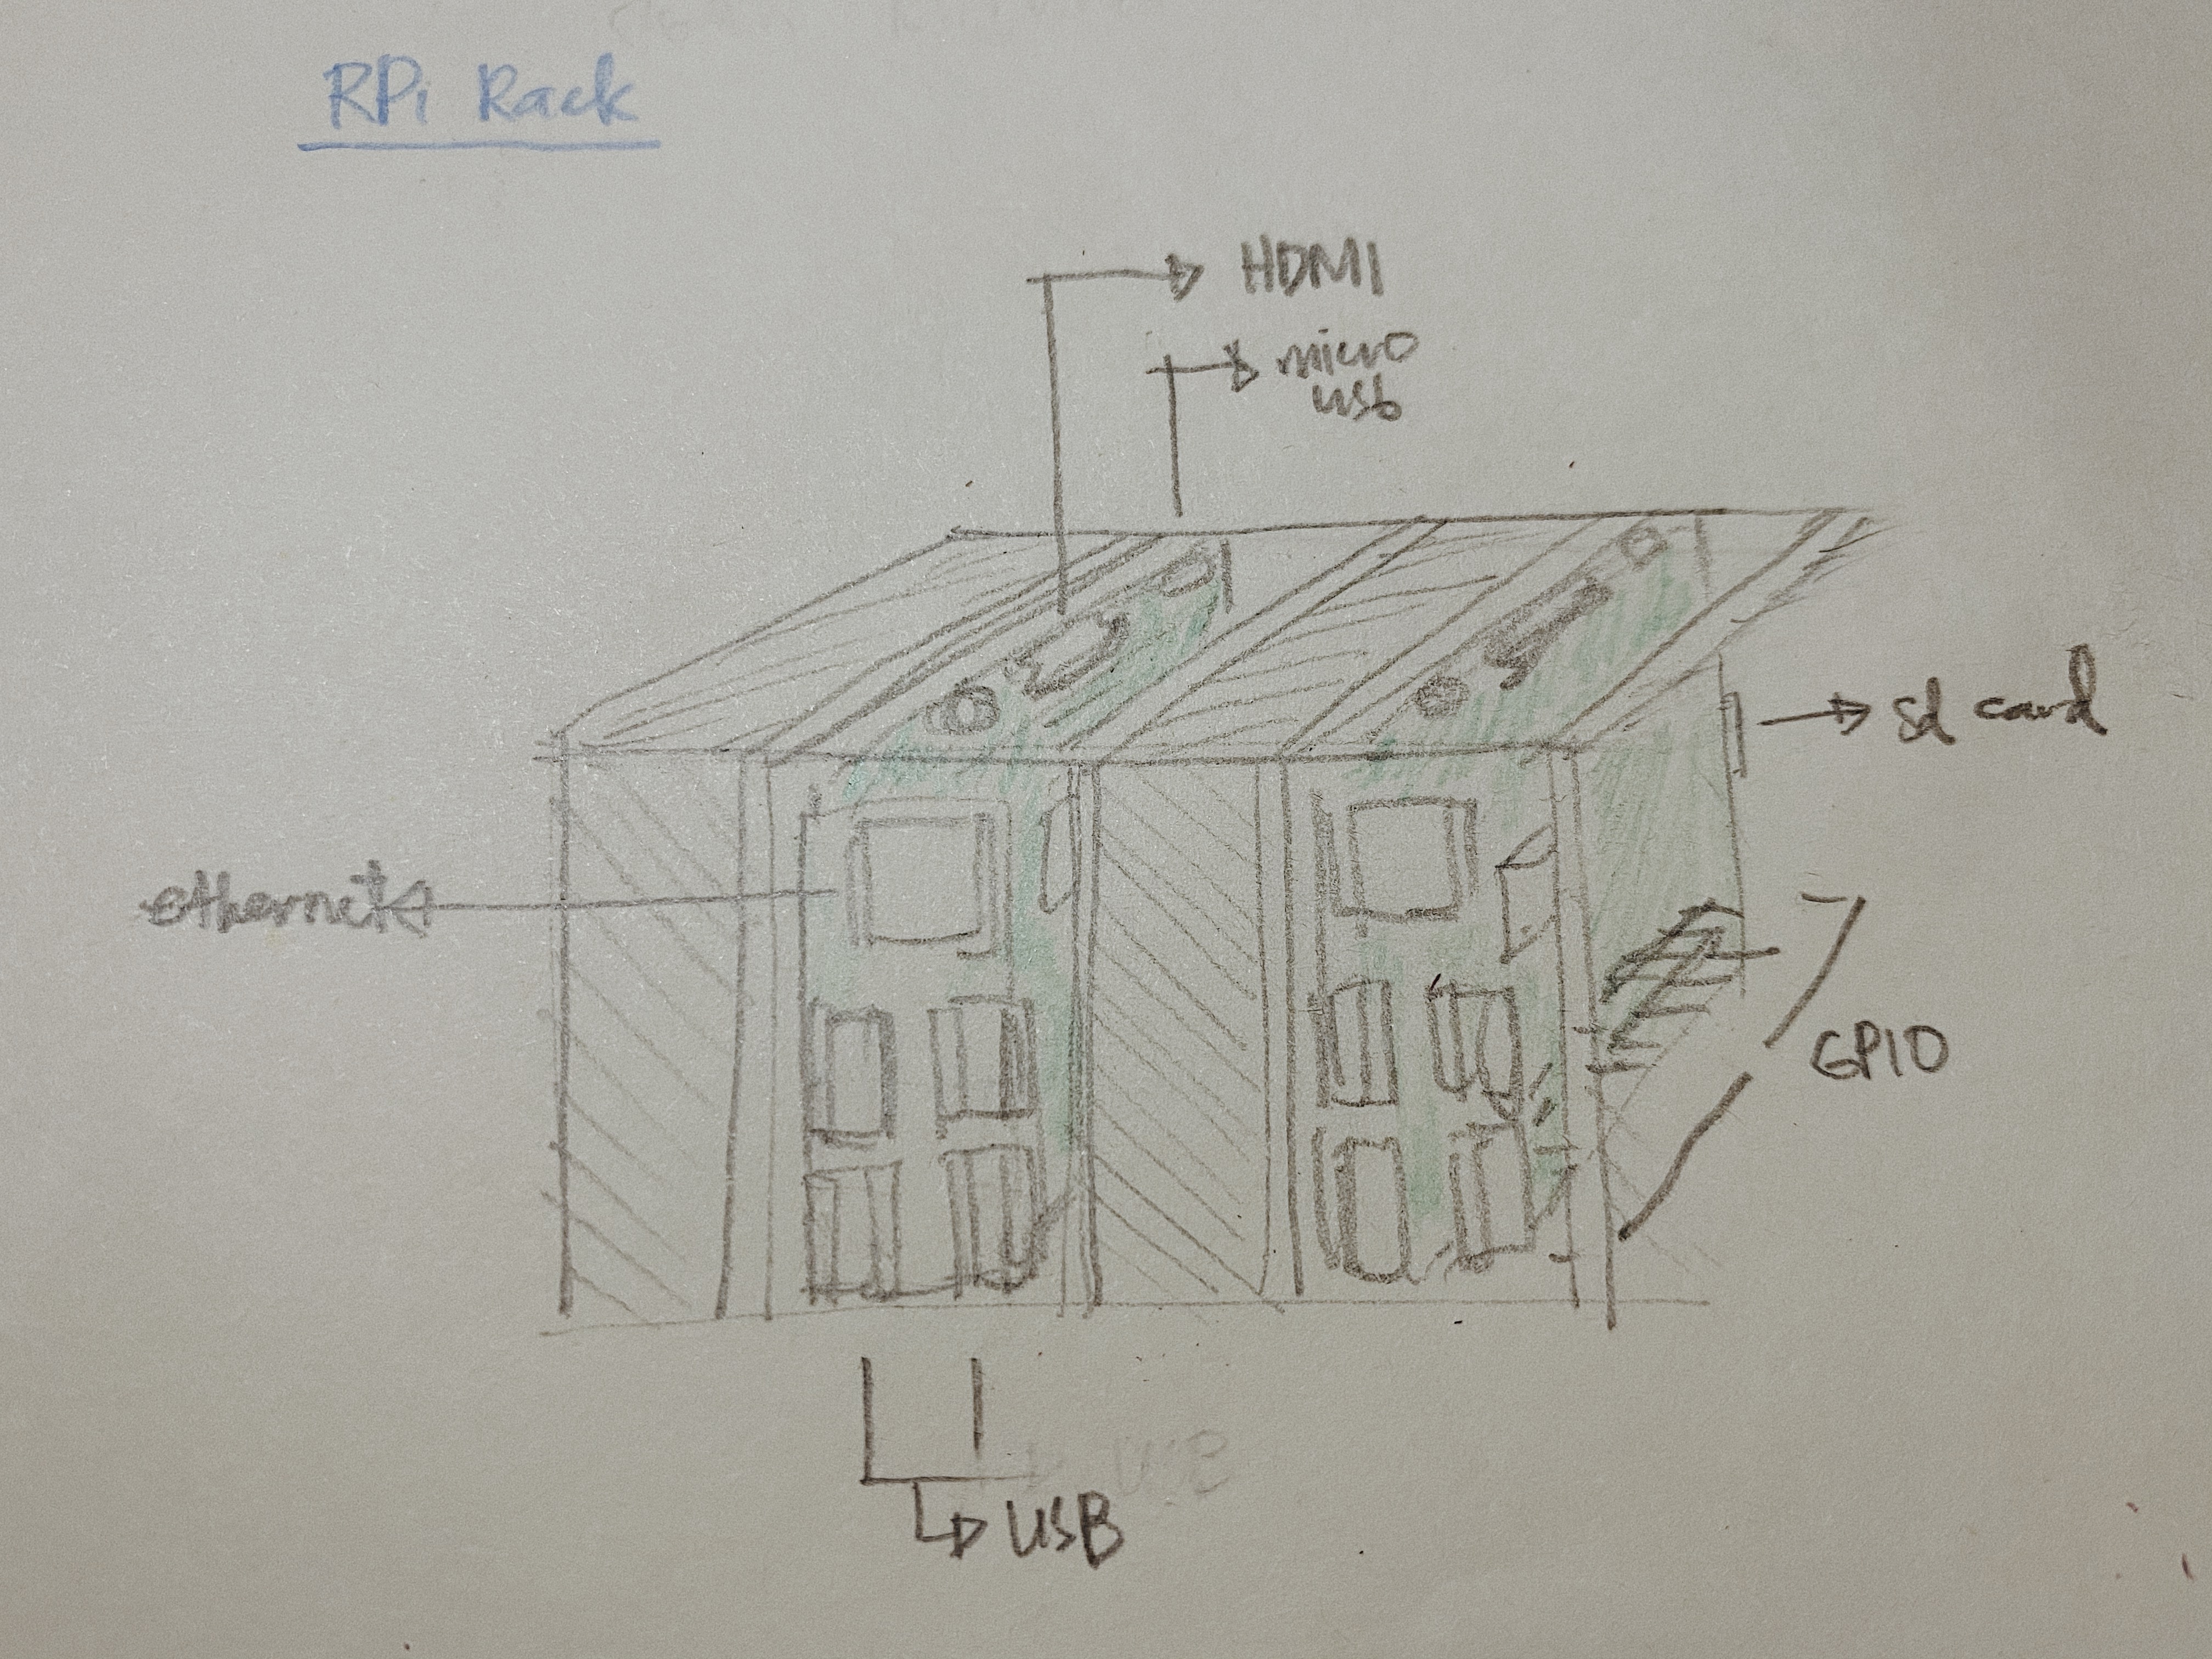 RPi Rack
HDMI
micro
usb
sd card
ethernet
GPIO
USB
USB